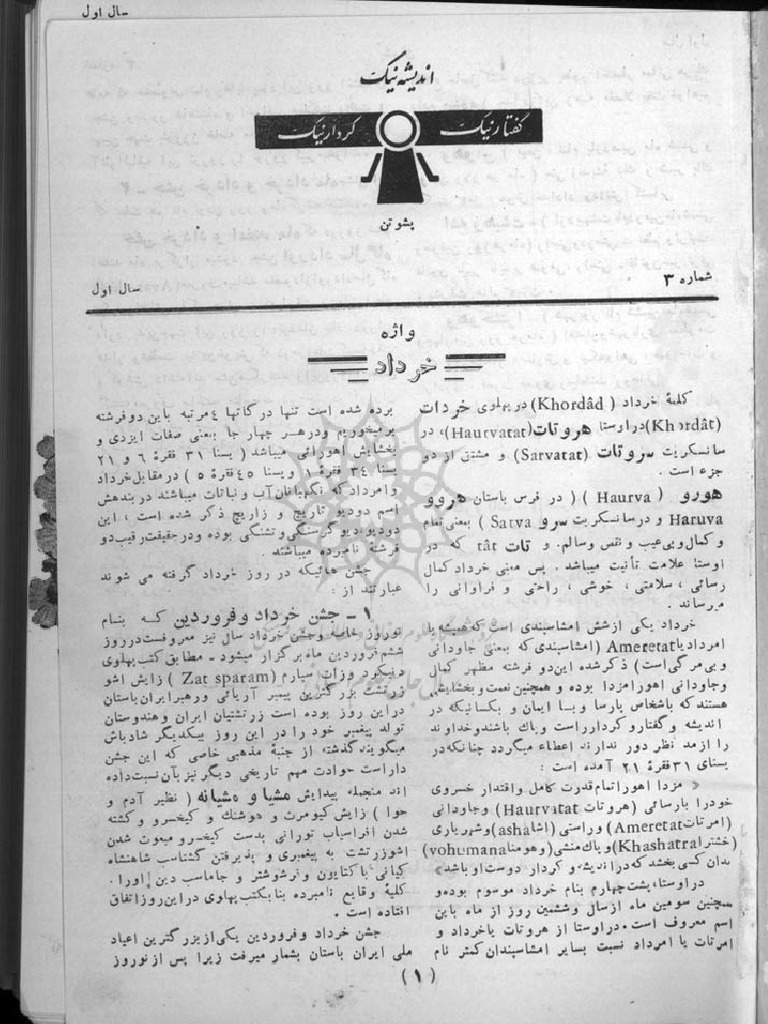 سال اول
اندیشه نیک
گفتار نیک
کردار نیک
پشوتن
شماره ۳
سال اول
واژه
خرداد
کلمهٔ خرداد (Khordâd) در پهلوی خردات
(Khordât) در اوستا هروتات (Haurvatat) در
سانسکریت سروتات (Sarvatat) و مشتق از دو
جزء است .
هورو ( Haurva ) ( در فرس باستان هروو
Haruva و در سانسکریت سرو Satva ) بمعنی تمام
و کمال و بی عیب و نقص و سالم. و تات tât که در
اوستا علامت تأنیث میباشد. پس معنی خرداد کمال
رسائی ، سلامتی ، خوشی ، راحتی و فراوانی را
میرساند .
خرداد یکی از شش امشاسپندی است که همیشه با
امرداد یا Ameretat (امشاسپندی که بمعنی جاودانی
و بی مرگی است) ذکر شده این دو فرشته مظهر کمال
و جاودانی اهورامزدا بوده و همچنین نعمت و بخشایش
هستند که باشخاص پارسا و بسا ایمان و یکسانیکه در
اندیشه و گفتار و کردار راست و پاک باشند و خداوند
را از مد نظر دور ندارند اعطاء میگردد چنانکه در
یسنای ۳۱ فقرهٔ ۲۱ آمده است :
« مزدا اهورا تمام قدرت کامل و اقتدار خسروی
خود را با رسائی (هروتات Haurvatat) و جاودانی
(امرتات Ameretat) و راستی (اشا asha) و شهریاری
(خشترا Khashatra) و پاک منشی (وهومنا vohumana)
بدان کسی بخشد که در اندیشه و کردار دوست او باشد»
در اوستا، یشت چهارم بنام خرداد موسوم بوده و
همچنین سومین ماه از سال و ششمین روز از ماه باین
اسم معروف است. در اوستا از هروتات یا خرداد و
امرتات یا امرداد نسبت بسایر امشاسپندان کمتر نام
برده شده است تنها در گاتها ٤ مرتبه باین دو فرشته
برمیخوریم و در هر چهار جا بمعنی صفات ایزدی و
بخشایش اهورائی میباشد ( یسنا ۳۱ فقرهٔ ۶ و ۲۱
یسنا ۳٤ فقرهٔ ۱ و یسنا ٤٥ فقرهٔ ٥ ) در مقابل خرداد
و امرداد که نگهبانان آب و نباتات میباشند در بندهش
اسم دو دیو تاریچ و زاریچ ذکر شده است ، این
دو دیو، دیو گرسنگی و تشنگی بوده و در حقیقت رقیب دو
فرشتهٔ نامبرده میباشند .
جشن هائیکه در روز خرداد گرفته می شوند
عبارتند از :
۱ - جشن خرداد و فروردین که بنام
نوروز خاصه و جشن خرداد سال نیز معروفست در روز
ششم فروردین ماه برگزار میشود - مطابق کتب پهلوی
دینکرد و زات سپارم (Zat sparam) زایش اشو
زرتشت بزرگترین پیمبر آریائی و رهبر ایران باستان
در این روز بوده است زرتشتیان ایران و هندوستان
تولد پیغمبر خود را در این روز بیکدیگر شادباش
میگویند گذشته از جنبهٔ مذهبی خاصی که این جشن
داراست حوادت مهم تاریخی دیگر نیز بآن نسبت داده
اند منجمله پیدایش مشیا و مشیانه ( نظیر آدم و
حوا ) زایش کیومرث و هوشنک و کیخسرو و کشته
شدن افراسیاب تورانی بدست کیخسرو مبعوث شدن
اشوزرتشت به پیغمبری و پذیرفتن گشتاسب شاهنشاه
کیانی با کتایون و فرشوشتر و جاماسب دین اورا.
کلیهٔ وقایع نامبرده بنا بکتب پهلوی در این روز اتفاق
افتاده است .
جشن خرداد و فروردین یکی از بزرگترین اعیاد
ملی ایران باستان بشمار میرفت زیرا پس از نوروز
(۱)